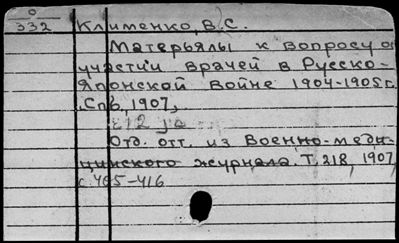 0
332
Клименко, В.С.
Матерьялы к вопросу о
участии врачей в Русско-
Японской войне 1904-1905 г.
Спб, 1907,
Отд. отт. из Военно-меди-
цинского журнала. Т. 218, 1907
с. 405-416